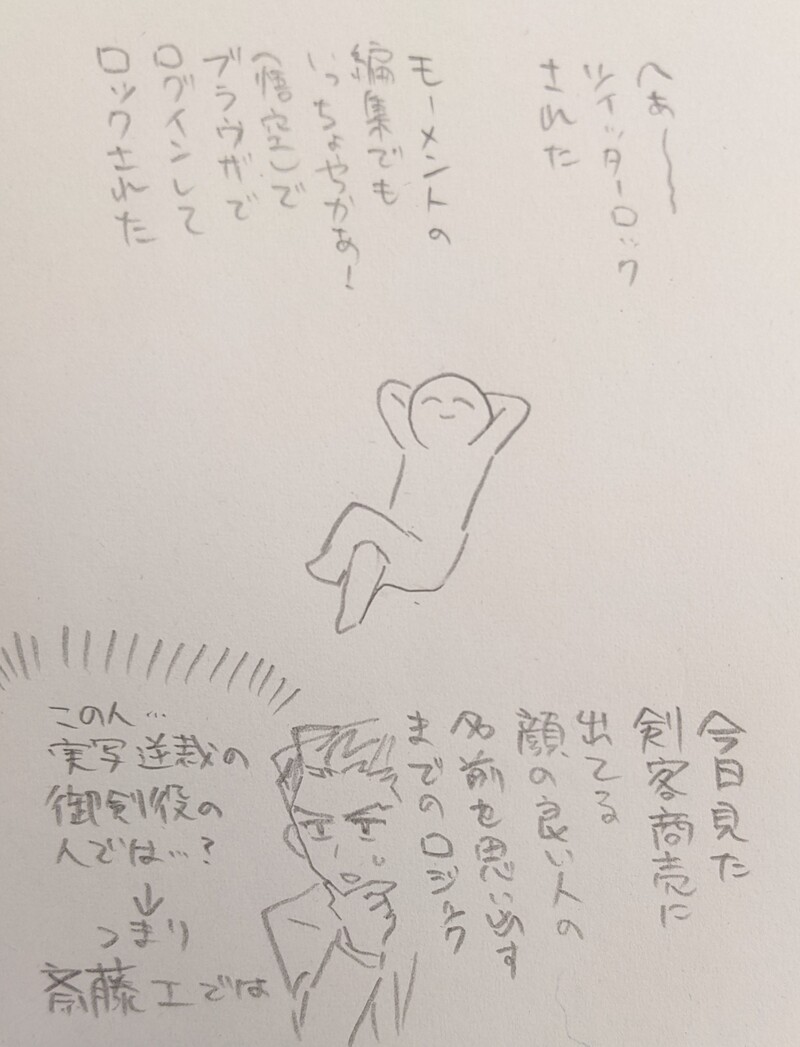 へぁ〜〜
ツイッターロック
された
モーメントの
編集でも
いっちょやっかぁ!
(悟空)で
ブラウザで
ログインして
ロックされた
今日見た
剣客商売に
出てる
顔の良い人の
名前を思い出す
までのロジック
この人…
実写逆裁の
御剣役の
人では…?
↓
つまり
斎藤工では